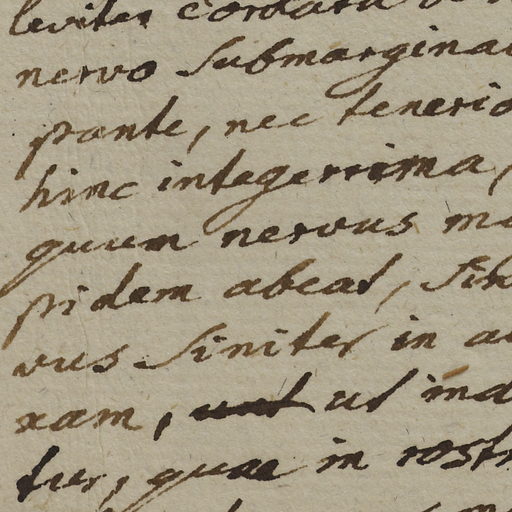 leviter cordata
nervo submargina
pante, nec teneri
hinc integerrima,
quum nervus m
pidem abeat, sin
vus siniter in a
xam, ut ina
tur, quae in rost